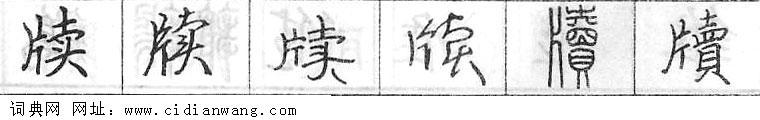 牍 牍 牍 牍 牘 牘
词典网 网址：www.cidianwang.com